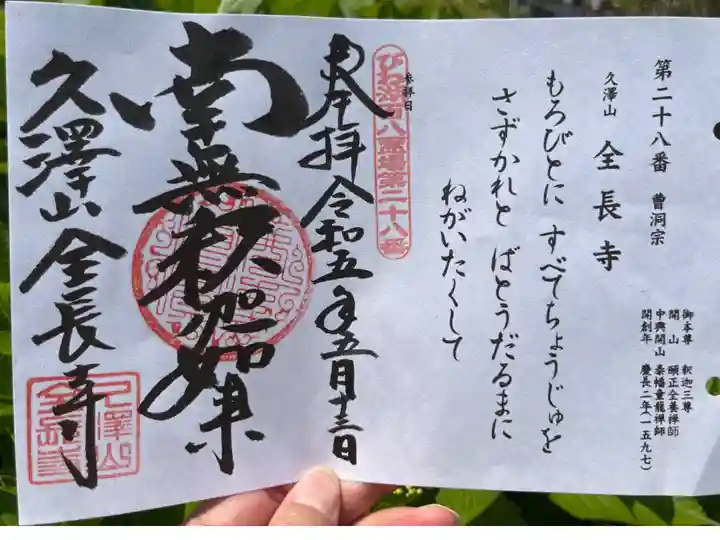 第二十八番 曹洞宗
久澤山 全長寺
もろびとに すべてちょうじゅを
さずかれと ばとうだるまに
ねがいたくして
御本尊 釈迦三尊
開山 頤正全養禅師
中興開山 泰幡童龍禅師
開創年 慶長二年(一五九七)
参拝日
びわ湖百八霊場第二十八番
奉拝 令和五年五月十三日
南無釈迦如来
久澤山 全長寺